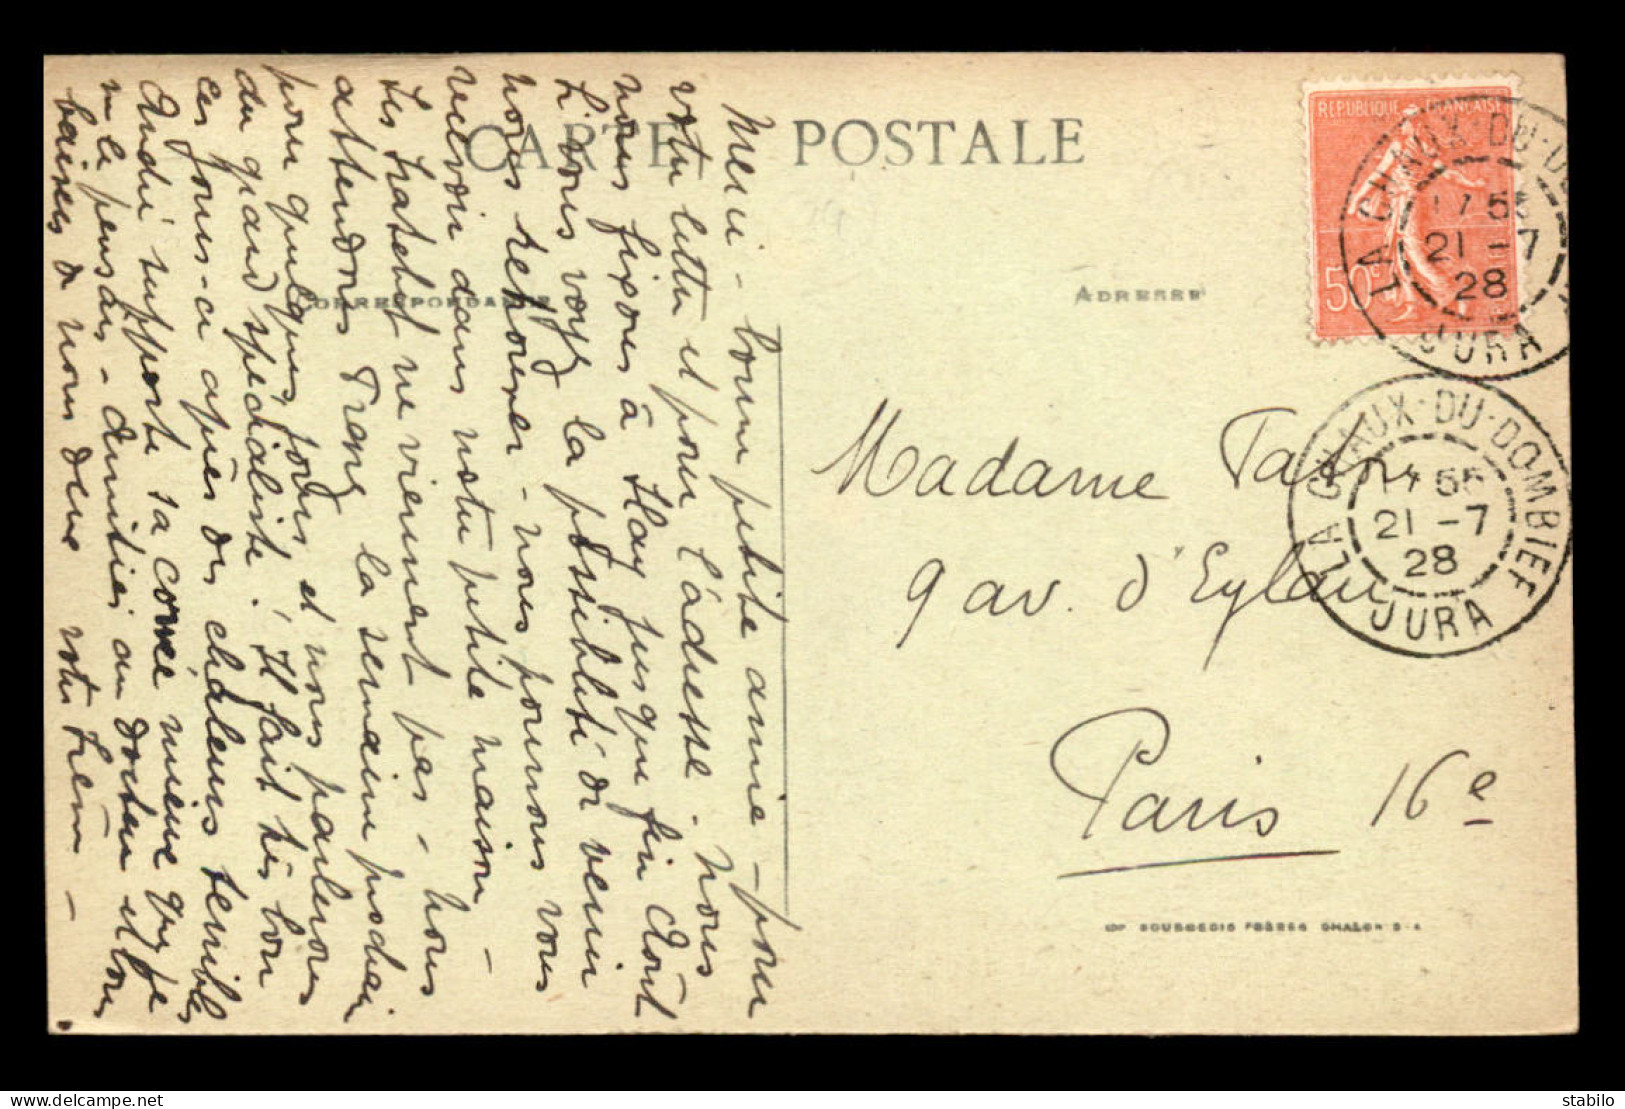 CARTE POSTALE
CORRESPONDANCE
ADRESSE
REPUBLIQUE FRANÇAISE
50c
LA CHAUX-DU-D
17 55
21-7
28
JURA
LA CHAUX-DU-DOMBIEF
17 55
21-7
28
JURA
Merci - bonne petite amie - pour
votre lettre et pour l'adresse - nous
nous fixons à Hay jusque fin Août
si vous voyez la possibilité de venir
vous reposer - nous pourrons vous
recevoir dans notre petite maison -
ne viennent pas - nous
attendons la semaine prochain
pour quelques jours et nous parlerons
du grand spécialiste ! Il fait très bon
ces jours-ci après des chaleurs terribles
André supporte sa même que je
ne le pensais - amitiés au docteur et bons
baisers de nous deux votre
Madame
9 av. d'Eylau
Paris 16e
IMP BOURGEOIS FRÈRES CHALON S-S
stabilo | Delcampe.net